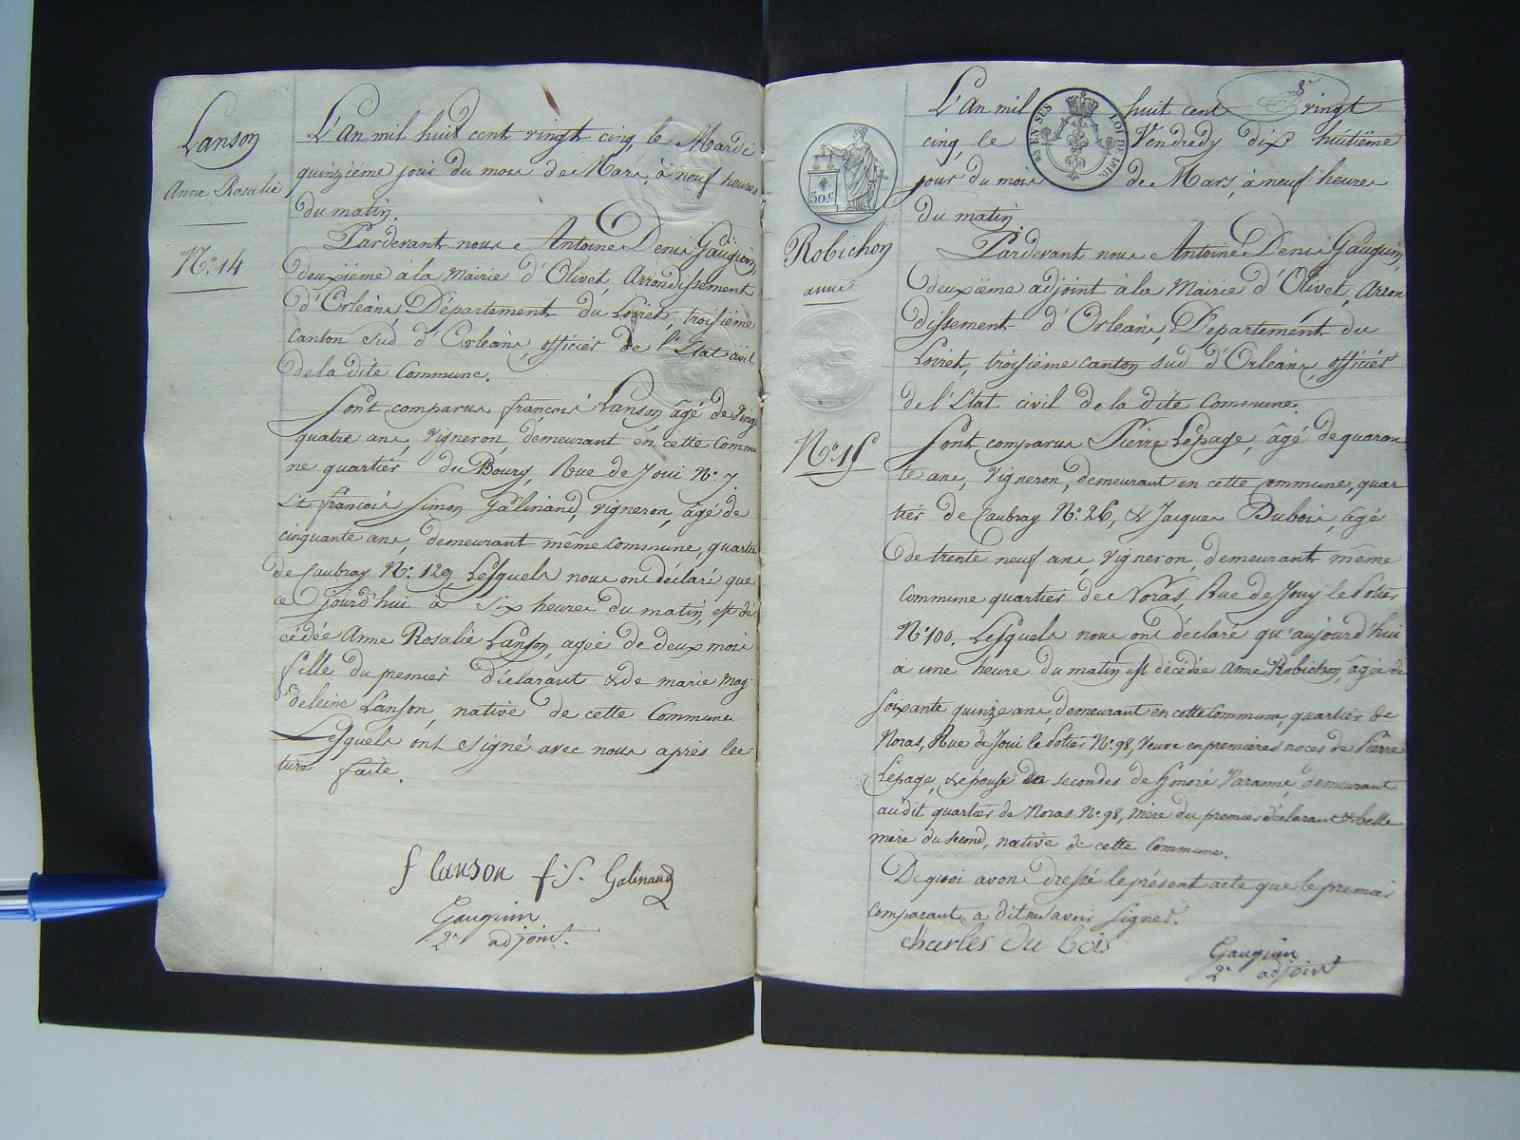 Lanson
Anne Rosalie
N.o 14
L'An mil huit cent vingt cinq, le Mardi
quinziéme jour du mois de Mars, à neuf heures
du matin.
Pardevant nous Antoine Denis Gauguin,
deuxiéme à la Mairie d'Olivet, Arrondissement
d'Orléans, Département du Loiret, troisiéme
Canton sud d'Orléans, officier de l'Etat civil
de la dite Commune.
Sont comparus françois Lanson âgé de Vingt
quatre ans, Vigneron, demeurant en cette Commu
ne quartier du Bourg, Rue de Joui N.o 7.
Et françois Simon Galinand, vigneron, âgé de
cinquante ans, demeurant même Commune, quartier
de Caubray N.o 129, Lesquels nous ont déclaré que
ce jourd'hui à six heures du matin, est dé
cédée Anne Rosalie Lanson, agée de deux mois
fille du premier déclarant & de marie Mag
deleine Lanson, native de cette Commune
Lesquels ont signé avec nous après lec
ture faite.
f lanson f. S. Galinand
Gauguin
2e adjoint.
L'An mil huit cent vingt
cinq, le Vendredy dix huitiéme
jour du mois de Mars, à neuf heures
du matin
Pardevant nous Antoine Denis Gauguin,
deuxiéme adjoint à la Mairie d'Olivet, Arron
dissement d'Orléans, Département du
Loiret, troisiéme Canton sud d'Orléans, officier
de l'Etat civil de la dite Commune.
50c
Robichon
anne
N.o 15
Sont comparus Pierre Lepage, âgé de quaran
te ans, Vigneron, demeurant en cette commune, quar
tier de Caubray N.o 26, & Jacques Dubois, âgé
de trente neuf ans, Vigneron, demeurant même
Commune quartier de Noras, Rue de Jouy le Potier
N.o 100. Lesquels nous ont déclaré qu'aujourd'hui
à une heure du matin est décédée anne Robichon, âgée de
soixante quinze ans, demeurant en cette Commune, quartier de
Noras, Rue de Joui le Potier N.o 98, Veuve en premières noces de Pierre
Lepage, & épouse en secondes de honoré Varanne, demeurant
audit quartier de Noras N.o 98, mere du premier déclarant & belle
mere du second, native de cette Commune.
De quoi avons dressé le présent acte que le premier
Comparant a dit ne savoir signer.
Charles Du bois
Gauguin
2e adjoint